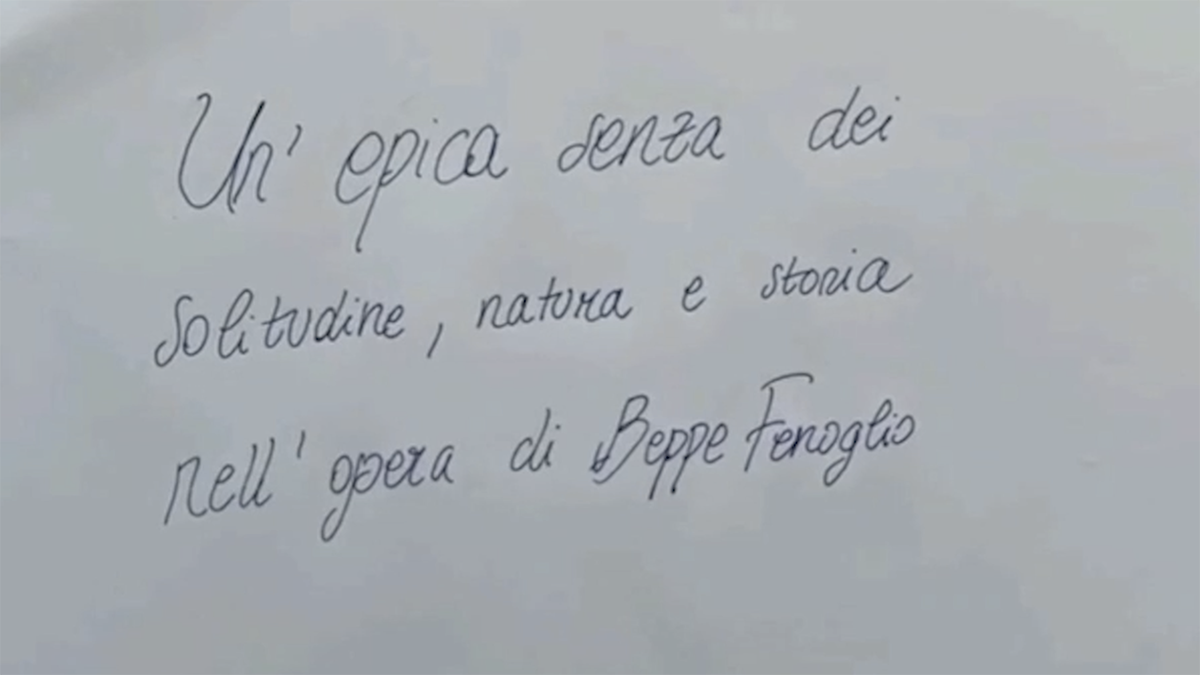 Un' epica senza dei
Solitudine, natura e storia
nell' opera di Beppe Fenoglio